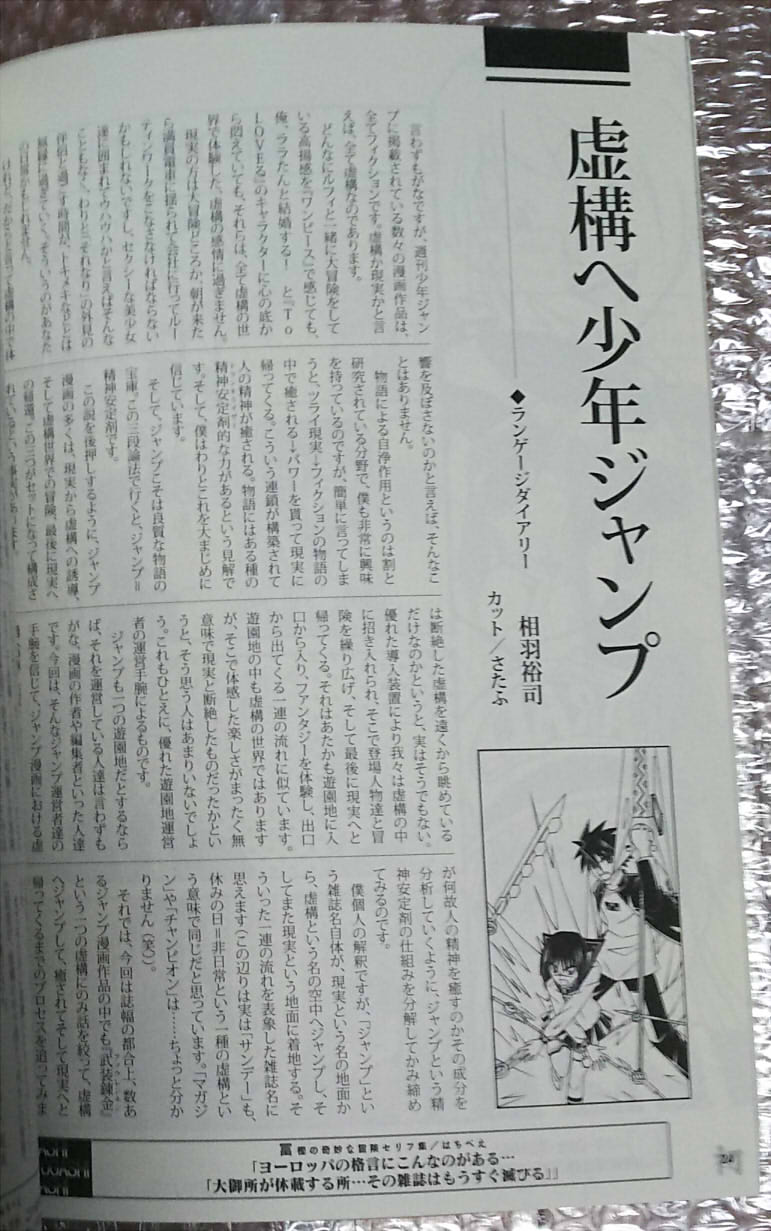 虚構へ少年ジャンプ
◆ランゲージダイアリー
相羽裕司
カット/さたふ
言わずもがなですが、週刊少年ジャン
プに掲載されている数々の漫画作品は、
全てフィクションです。虚構か現実かと言
えば、全て虚構なのであります。
どんなにルフィと一緒に大冒険をして
いる高揚感を『ワンピース』で感じても、
俺、ララたんと結婚する! と『To
LOVEる』のキャラクターに心の底か
ら悶えていても、それらは、全て虚構の世
界で体験した、虚構の感情に過ぎません。
現実の方は大冒険どころか、朝が来た
ら満員電車に揺られて会社に行ってルー
ティンワークをこなさなければならない
かもしれないですし、セクシーな美少女
達に囲まれてウハウハかと言えばそんな
こともなく、わりと「それなり」の外見の
伴侶と過ごす時間が、トキメキなどとは
無縁に過ぎていく、そういうのがあなた
の日常かもしれません。
けれど、だからと言って虚構の中で体
響を及ぼさないのかと言えば、そんなこ
とはありません。
物語による自浄作用というのは割と
研究されている分野で、僕も非常に興味
を持っているのですが、簡単に言ってしま
うと、ツライ現実→フィクションの物語の
中で癒される→パワーを貰って現実に
帰ってくる。こういう連鎖が構築されて
人の精神が癒される。物語にはある種の
精神安定剤的な力があるという見解で
す。そして、僕はわりとこれを大まじめに
信じています。
そして、ジャンプこそは良質な物語の
宝庫。この三段論法で行くと、ジャンプ＝
精神安定剤です。
この説を後押しするように、ジャンプ
漫画の多くは、現実から虚構への誘導、
そして虚構世界での冒険、最後に現実へ
の帰還、この三つがセットになって構成さ
れているという事実があります。
は断絶した虚構を遠くから眺めている
だけなのかというと、実はそうでもない。
優れた導入装置により我々は虚構の中
に招き入れられ、そこで登場人物達と冒
険を繰り広げ、そして最後に現実へと
帰ってくる。それはあたかも遊園地に入
口から入り、ファンタジーを体験し、出口
から出てくる一連の流れに似ています。
遊園地の中も虚構の世界ではあります
が、そこで体感した楽しさがまったく無
意味で現実と断絶したものだったかとい
うと、そう思う人はあまりいないでしょ
う。これもひとえに、優れた遊園地運営
者の運営手腕によるものです。
ジャンプも一つの遊園地だとするなら
ば、それを運営している人達は言わずも
がな、漫画の作者や編集者といった人達
です。今回は、そんなジャンプ運営者達の
手腕を信じて、ジャンプ漫画における虚
が何故人の精神を癒すのかその成分を
分析していくように、ジャンプという精
神安定剤の仕組みを分解してかみ締め
てみるのです。
僕個人の解釈ですが、「ジャンプ」とい
う雑誌名自体が、現実という名の地面か
ら、虚構という名の空中へジャンプし、そ
してまた現実という地面に着地する。そ
ういった一連の流れを表象した雑誌名に
思えます（この辺りは実は「サンデー」も、
休みの日＝非日常という一種の虚構とい
う意味で同じだと思っています。「マガジ
ン」や「チャンピオン」は……ちょっと分か
りません（笑））。
それでは、今回は誌幅の都合上、数あ
るジャンプ漫画作品の中でも『武装錬金』
という一つの虚構にのみ話を絞って、虚構
へジャンプして、癒されてそして現実へと
帰ってくるまでのプロセスを追ってみま
冨樫の奇妙な冒険セリフ集/はちべえ
「ヨーロッパの格言にこんなのがある…
「大御所が休載する所…その雑誌はもうすぐ滅びる」」